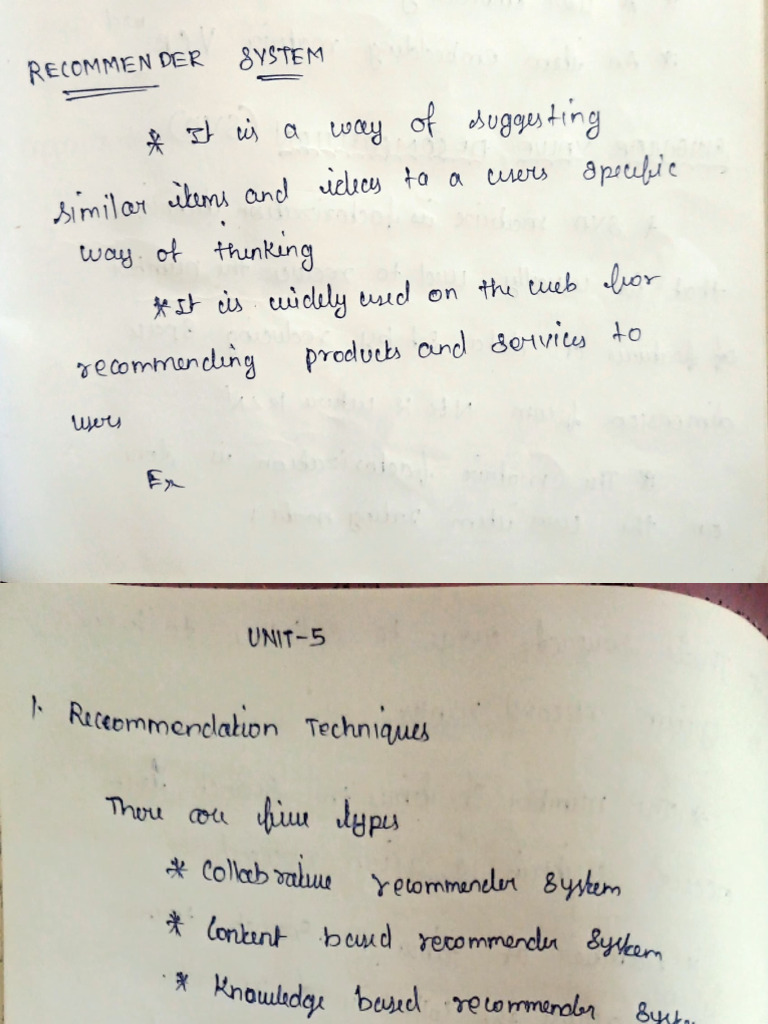 RECOMMENDER SYSTEM
* It is a way of suggesting
similar items and ideas to a users specific
way of thinking
* It is widely used on the web for
recommending products and services to
users
Ex
UNIT-5
1. Reccommendation Techniques
There are five types
* Collabrative recommender system
* Content based recommender system
* Knowledge based recommender system